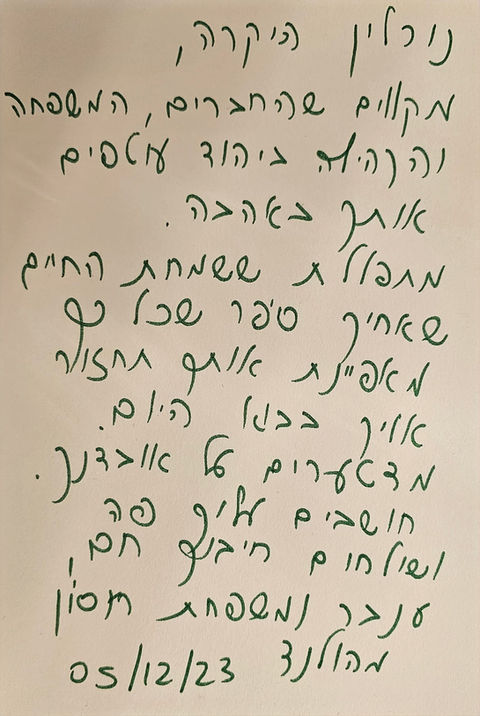 נורלין היקרה,
מקווים שהחברים, המשפחה
והקהילה ביהוד עוטפים
אותך באהבה.
מתפללת ששמחת החיים
שאחיך סיפר שכל כך
מאפיינת אותך תחזור
אלייך בבוא היום.
מצטערים על אובדנך.
חושבים עלייך פה
ושולחים חיבוק חם,
ענבר ומשפחת
מהולנד 05/12/23